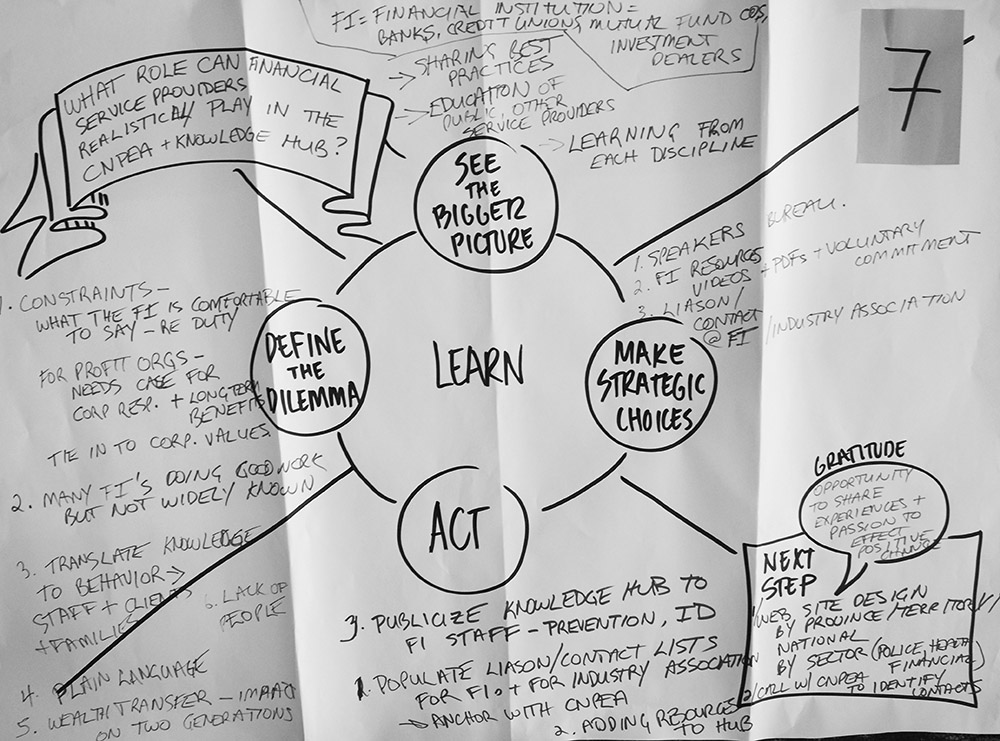 FI = FINANCIAL INSTITUTION =
BANKS, CREDIT UNIONS, MUTUAL FUND COS,
INVESTMENT
DEALERS
7
WHAT ROLE CAN FINANCIAL
SERVICE PROVIDERS
REALISTICALLY PLAY IN THE
CNPEA + KNOWLEDGE HUB?
→ SHARING BEST
PRACTICES
→ EDUCATION OF
PUBLIC, OTHER
SERVICE PROVIDERS
→ LEARNING FROM
EACH DISCIPLINE
SEE
THE
BIGGER
PICTURE
1. SPEAKERS BUREAU.
2. FI RESOURCES
VIDEOS + PDFS + VOLUNTARY
COMMITMENT
3. LIASON/
CONTACT
@ FI / INDUSTRY ASSOCIATION
MAKE
STRATEGIC
CHOICES
LEARN
DEFINE
THE
DILEMMA
1. CONSTRAINTS -
WHAT THE FI IS COMFORTABLE
TO SAY - RE DUTY
FOR PROFIT ORGS -
NEEDS CASE FOR
CORP RESP. + LONG TERM
BENEFITS
TIE IN TO CORP. VALUES
2. MANY FI'S DOING GOOD WORK
BUT NOT WIDELY KNOWN
3. TRANSLATE KNOWLEDGE
TO BEHAVIOR →
STAFF + CLIENTS
+ FAMILIES
4. PLAIN LANGUAGE
5. WEALTH TRANSFER - IMPACT
ON TWO GENERATIONS
6. LACK OF
PEOPLE
ACT
3. PUBLICIZE KNOWLEDGE HUB TO
FI STAFF - PREVENTION, ID
1. POPULATE LIASON/CONTACT LISTS
FOR FI. + FOR INDUSTRY ASSOCIATION
→ ANCHOR WITH CNPEA
2. ADDING RESOURCES
TO HUB
GRATITUDE
OPPORTUNITY
TO SHARE
EXPERIENCES +
PASSION TO
EFFECT
POSITIVE
CHANGE
NEXT
STEP
1/ WEB SITE DESIGN
BY PROVINCE/TERRITORY/
NATIONAL
BY SECTOR (POLICE, HEALTH
FINANCIAL)
2/ CALL W/ CNPEA
TO IDENTIFY
CONTACTS